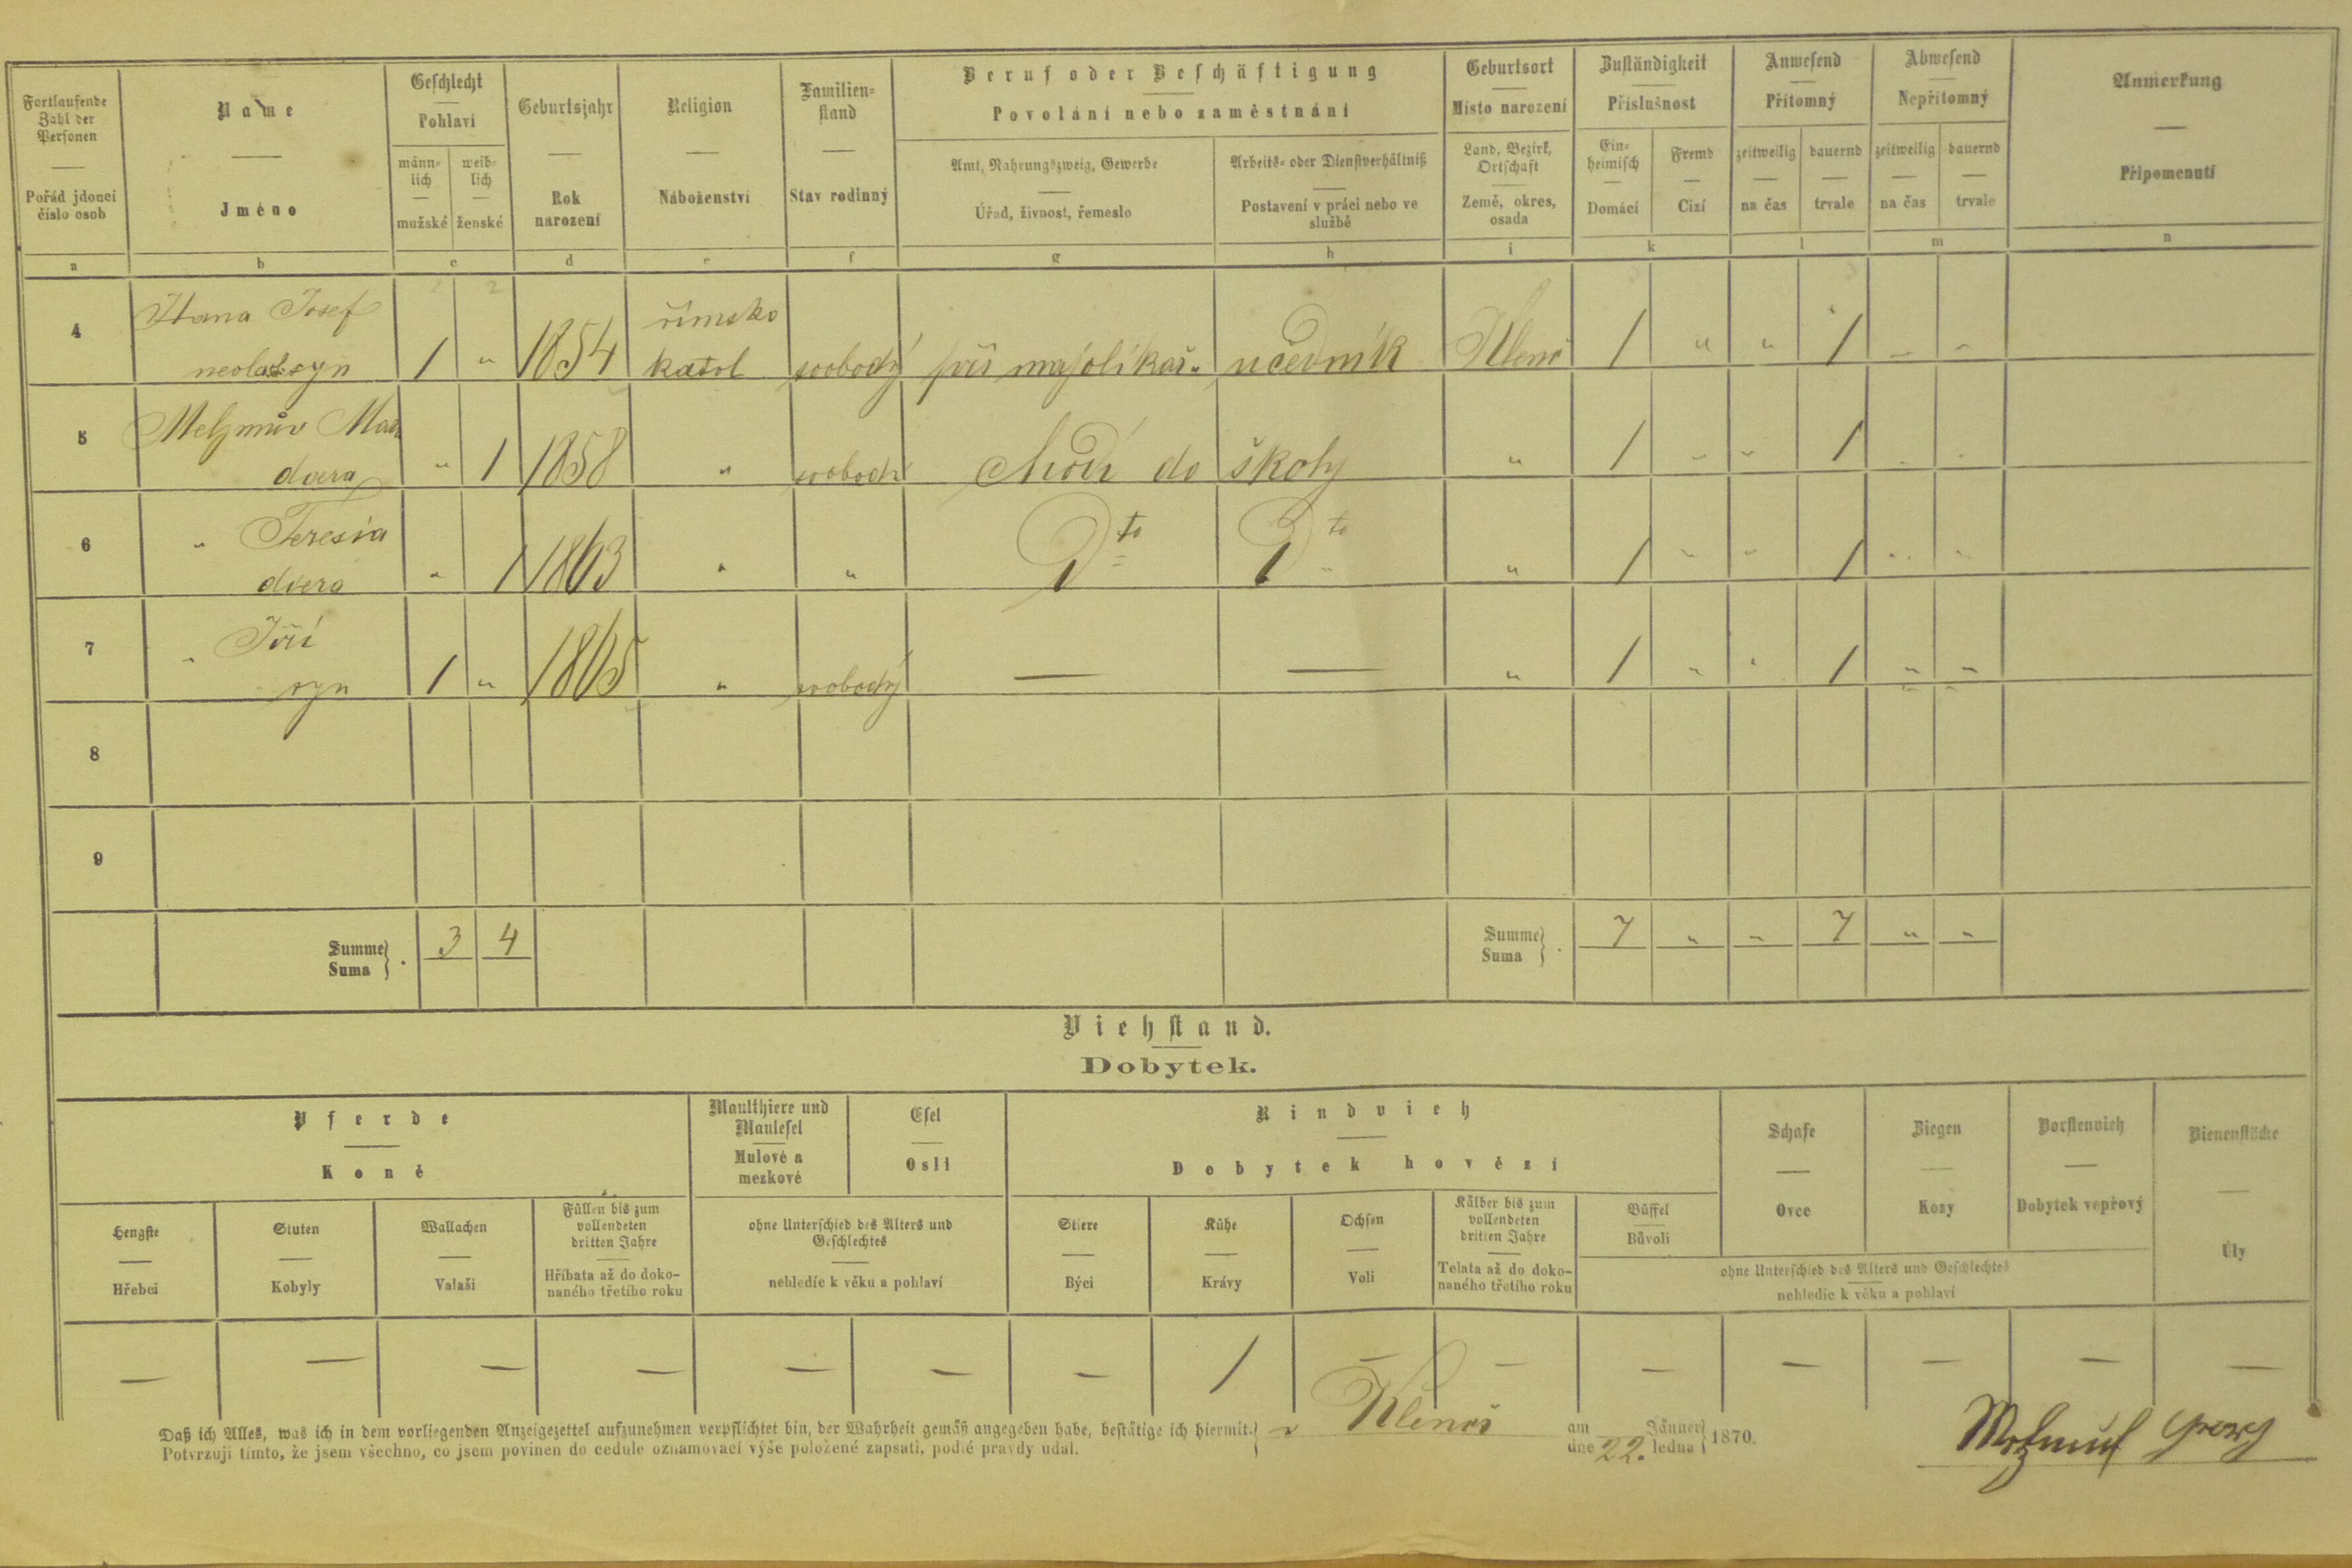 Fortlaufende Zahl der Personen
Pořád jdoucí číslo osob
Name
Jméno
Geschlecht
Pohlaví
männ-lich
mužské
weib-lich
ženské
Geburtsjahr
Rok narození
Religion
Náboženství
Familien-stand
Stav rodinný
Beruf oder Beschäftigung
Povolání nebo zaměstnání
Amt, Nahrungszweig, Gewerbe
Úřad, živnost, řemeslo
Arbeits- oder Dienstverhältniß
Postavení v práci nebo ve službě
Geburtsort
Místo narození
Land, Bezirk, Ortschaft
Země, okres, osada
Zuständigkeit
Příslušnost
Ein-heimisch
Domácí
Fremd
Cizí
Anwesend
Přítomný
zeitweilig
na čas
dauernd
trvale
Abwesend
Nepřítomný
zeitweilig
na čas
dauernd
trvale
Anmerkung
Připomenutí
a b c d e f g h i k l m n
4 Josef římsko
syn 1 " 1854 katol svobodý při učedník Klenč 1 " " 1 – –
5
dcera " 1 1858 " svobod chodí do školy " 1 " " 1
6 " Teresia
dcera " 1 1863 " " Dto Dto " 1 " " 1 " "
7 " Jiří
syn 1 " 1865 " svobodý — — " 1 " " 1 " "
8
9
Summe
Suma 3 4
Summe
Suma 7 " " 7 " "
Viehstand.
Dobytek.
Pferde
Koně
Maulthiere und Maulesel
Mulové a mezkové
Esel
Osli
Rindvieh
Dobytek hovězí
Schafe
Ovce
Ziegen
Kozy
Borstenvieh
Dobytek vepřový
Bienenstöcke
Úly
Hengste
Hřebci
Stuten
Kobyly
Wallachen
Valaši
Füllen bis zum vollendeten dritten Jahre
Hříbata až do doko-naného třetího roku
ohne Unterschied des Alters und Geschlechtes
nehledíc k věku a pohlaví
Stiere
Býci
Kühe
Krávy
Ochsen
Voli
Kälber bis zum vollendeten dritten Jahre
Telata až do doko-naného třetího roku
Büffel
Bůvoli
ohne Unterschied des Alters und Geschlechtes
nehledíc k věku a pohlaví
— — — — — — — 1 — — — — — — —
Daß ich Alles, was ich in dem vorliegenden Anzeigezettel aufzunehmen verpflichtet bin, der Wahrheit gemäß angegeben habe, bestätige ich hiermit.
Potvrzuji tímto, že jsem všechno, co jsem povinen do cedule oznamovací výše položené zapsati, podlé pravdy udal.
v
am Jänner
dne 22. ledna 1870.
Georg